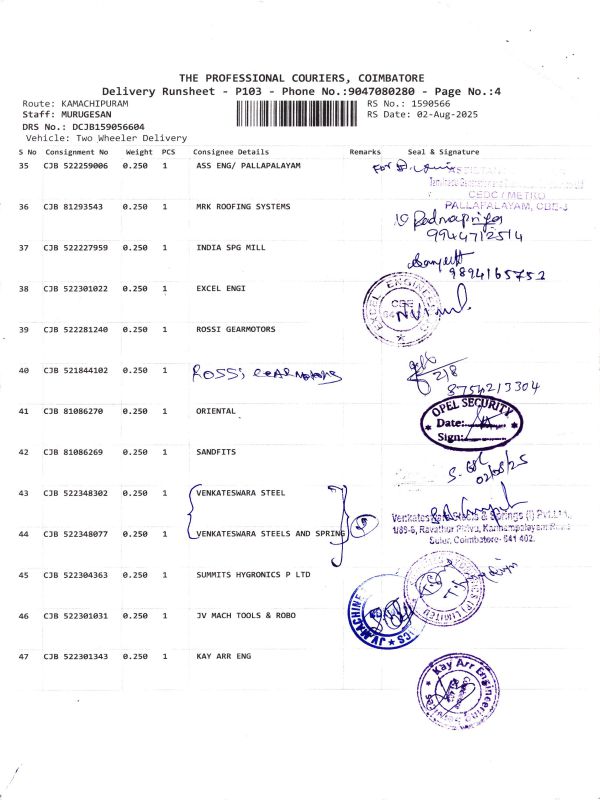 THE PROFESSIONAL COURIERS, COIMBATORE
Delivery Runsheet - P103 - Phone No.:9047080280 - Page No.:4
Route: KAMACHIPURAM RS No.: 1590566
Staff: MURUGESAN RS Date: 02-Aug-2025
DRS No.: DCJB159056604
Vehicle: Two Wheeler Delivery
S No Consignment No Weight PCS Consignee Details Remarks Seal & Signature
35 CJB 522259006 0.250 1 ASS ENG/ PALLAPALAYAM
For
CEDC / METRO
PALLAPALAYAM, CBE-
36 CJB 81293543 0.250 1 MRK ROOFING SYSTEMS
9944712514
37 CJB 522227959 0.250 1 INDIA SPG MILL
9894165752
38 CJB 522301022 0.250 1 EXCEL ENGI
EXCEL ENGINEERS
CBE
39 CJB 522281240 0.250 1 ROSSI GEARMOTORS
40 CJB 521844102 0.250 1 ROSSi GEARMOTORS
2/8
8754213304
41 CJB 81086270 0.250 1 ORIENTAL
OPEL SECURITY
Date:
Sign:
42 CJB 81086269 0.250 1 SANDFITS
02/08/25
43 CJB 522348302 0.250 1 VENKATESWARA STEEL
Venkateswara Steels & Springs (I) Pvt.Ltd.,
44 CJB 522348077 0.250 1 VENKATESWARA STEELS AND SPRING
1/89-6, Ravathur Pirivu, Kannampalayam Road
Sulur, Coimbatore- 641 402.
45 CJB 522304363 0.250 1 SUMMITS HYGRONICS P LTD
(P) LIMITED
46 CJB 522301031 0.250 1 JV MACH TOOLS & ROBO
JV MACHINE
47 CJB 522301343 0.250 1 KAY ARR ENG
Kay Arr Engineering Services